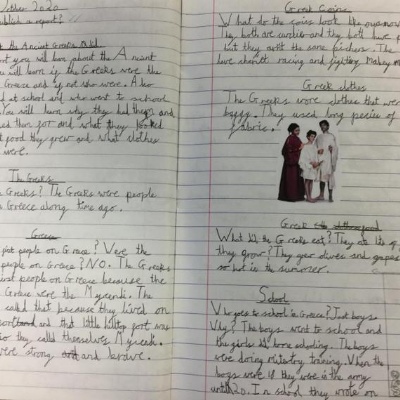 October 2020
publish a report?
the Ancient Greeks did
you will learn about the Ancient
you will learn if the Greeks were the
Greece and if not who were. Also
at school and who went to school
You will learn why they had
them for and what they looked
food they grew and what clothes
were.
The Greeks
Greeks? The Greeks were people
Greece along time ago.
Greece
first people on Greece? Were the
people on Greece? NO. The Greeks
first people on Greece because the
Greece were the
called that because they lived on
and that little hilltop fort was
so they called themselves
were strong and
Greek Coins
What do the coins look like
They both are circles and they both have
but they not the same picture. The
love chariot racing and fighting
Greek clothes
The Greeks wore clothes that were
baggy. They used long pieces of
fabric.
Greek
What did the Greeks eat? They
they grow? They grew olives and grapes
so hot in the summer.
School
Who goes to school in Greece? Just boys
Why? The boys went to school and
the girls did home schooling. The boys
were doing military training. When the
boys were 18 they were in the army
until 20. In school they wrote on